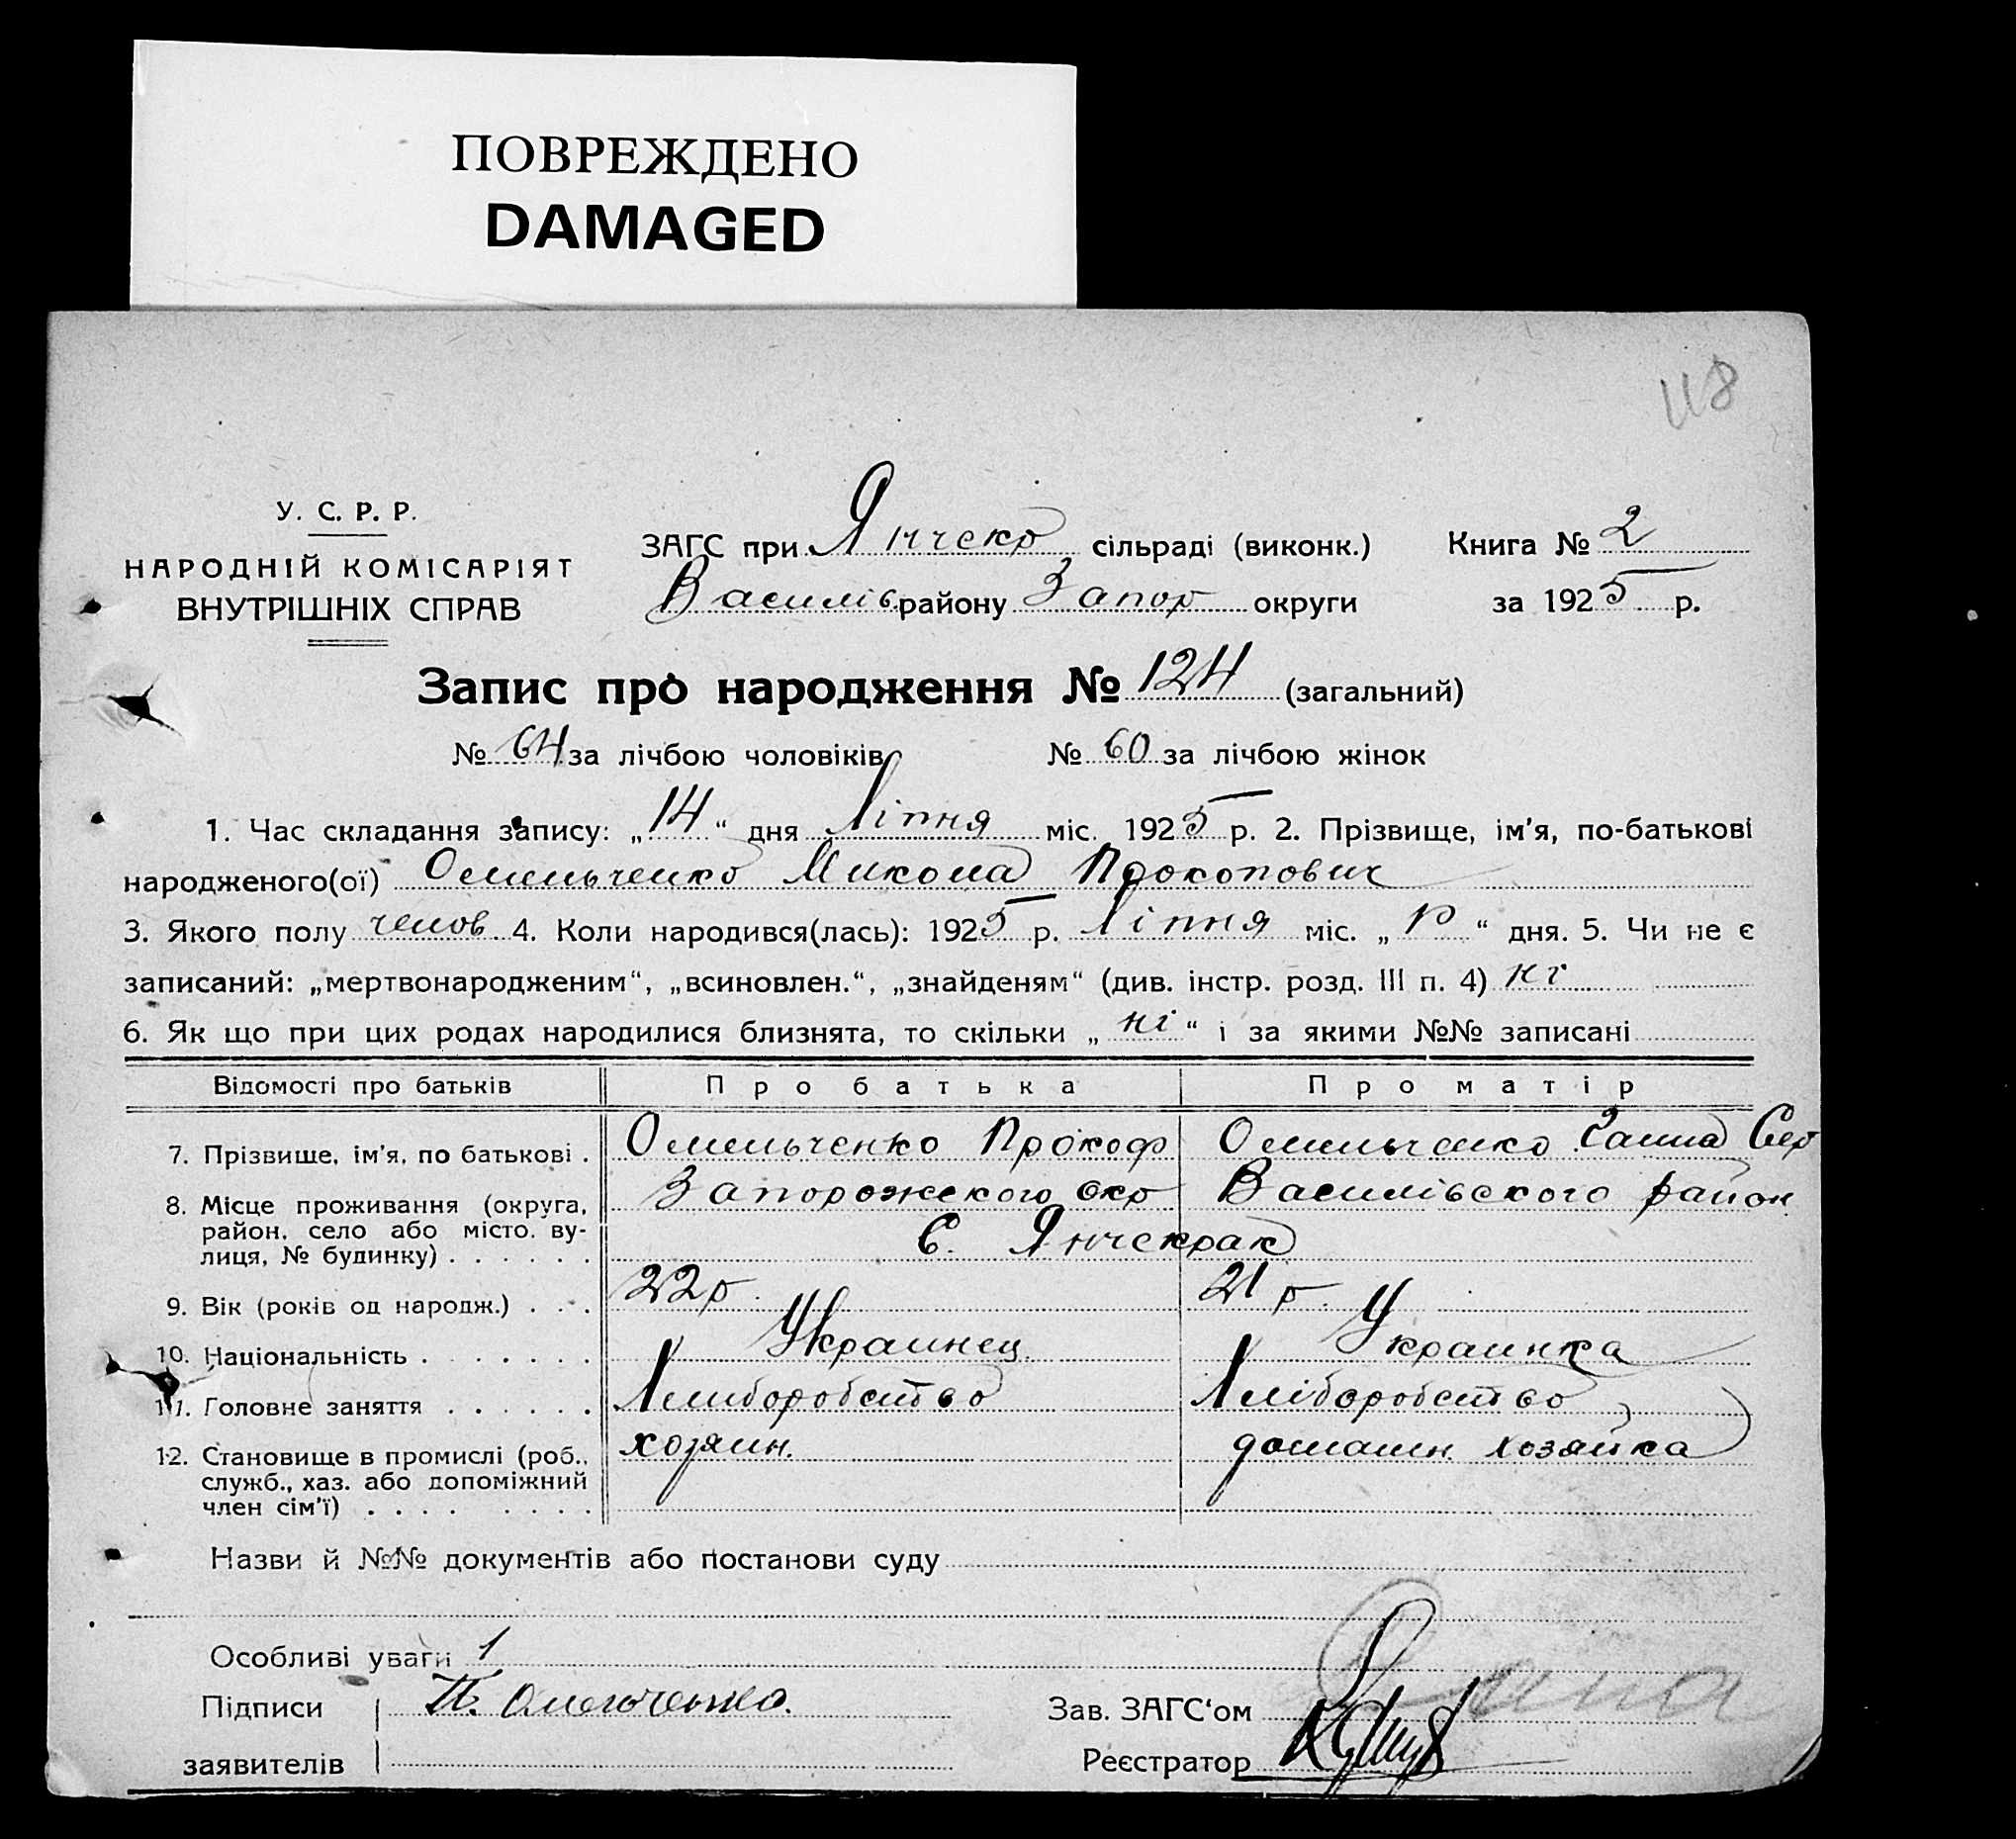 ПОВРЕЖДЕНО
DAMAGED
118
У. С. Р. Р.
НАРОДНІЙ КОМІСАРІЯТ
ВНУТРІШНІХ СПРАВ
ЗАГС при Янчекр сільраді (виконк.) Книга № 2
Василів району Запор округи за 1925 р.
Запис про народження № 124 (загальний)
№ 64 за лічбою чоловіків № 60 за лічбою жінок
1. Час складання запису: „14“ дня Ліпня міс. 1925 р. 2. Прізвище, ім'я, по-батькові
народженого(ої) Омельченко Микола Прокопович
3. Якого полу челов. 4. Коли народився(лась): 1925 р. Ліпня міс. „ “ дня. 5. Чи не є
записаний: „мертвонародженим“, „всиновлен.“, „знайденям“ (див. інстр. розд. III п. 4) ні
6. Як що при цих родах народилися близнята, то скільки „ні“ і за якими №№ записані
Відомості про батьків Про батька Про матір
7. Прізвище, ім'я, по батькові . Омельченко Прокоф Омельченко Ганна Сер
8. Місце проживання (округа, Запорожского окр Василівского район
район, село або місто, ву-
лиця, № будинку) . . . . . . С. Янчекрак
9. Вік (років од народж.) . . . 22 р. 21 р.
10. Національність . . . . . . . Украинец Украинка
11. Головне заняття . . . . . . Хлиборобство Хліборобство
12. Становище в промислі (роб., хозяин. домашн. хозяйка
служб., хаз. або допоміжний
член сім'ї) . . . . . . . .
Назви й №№ документів або постанови суду
Особливі уваги 1
Підписи П. Омельченко.
Зав. ЗАГС'ом
заявителів
Реєстратор